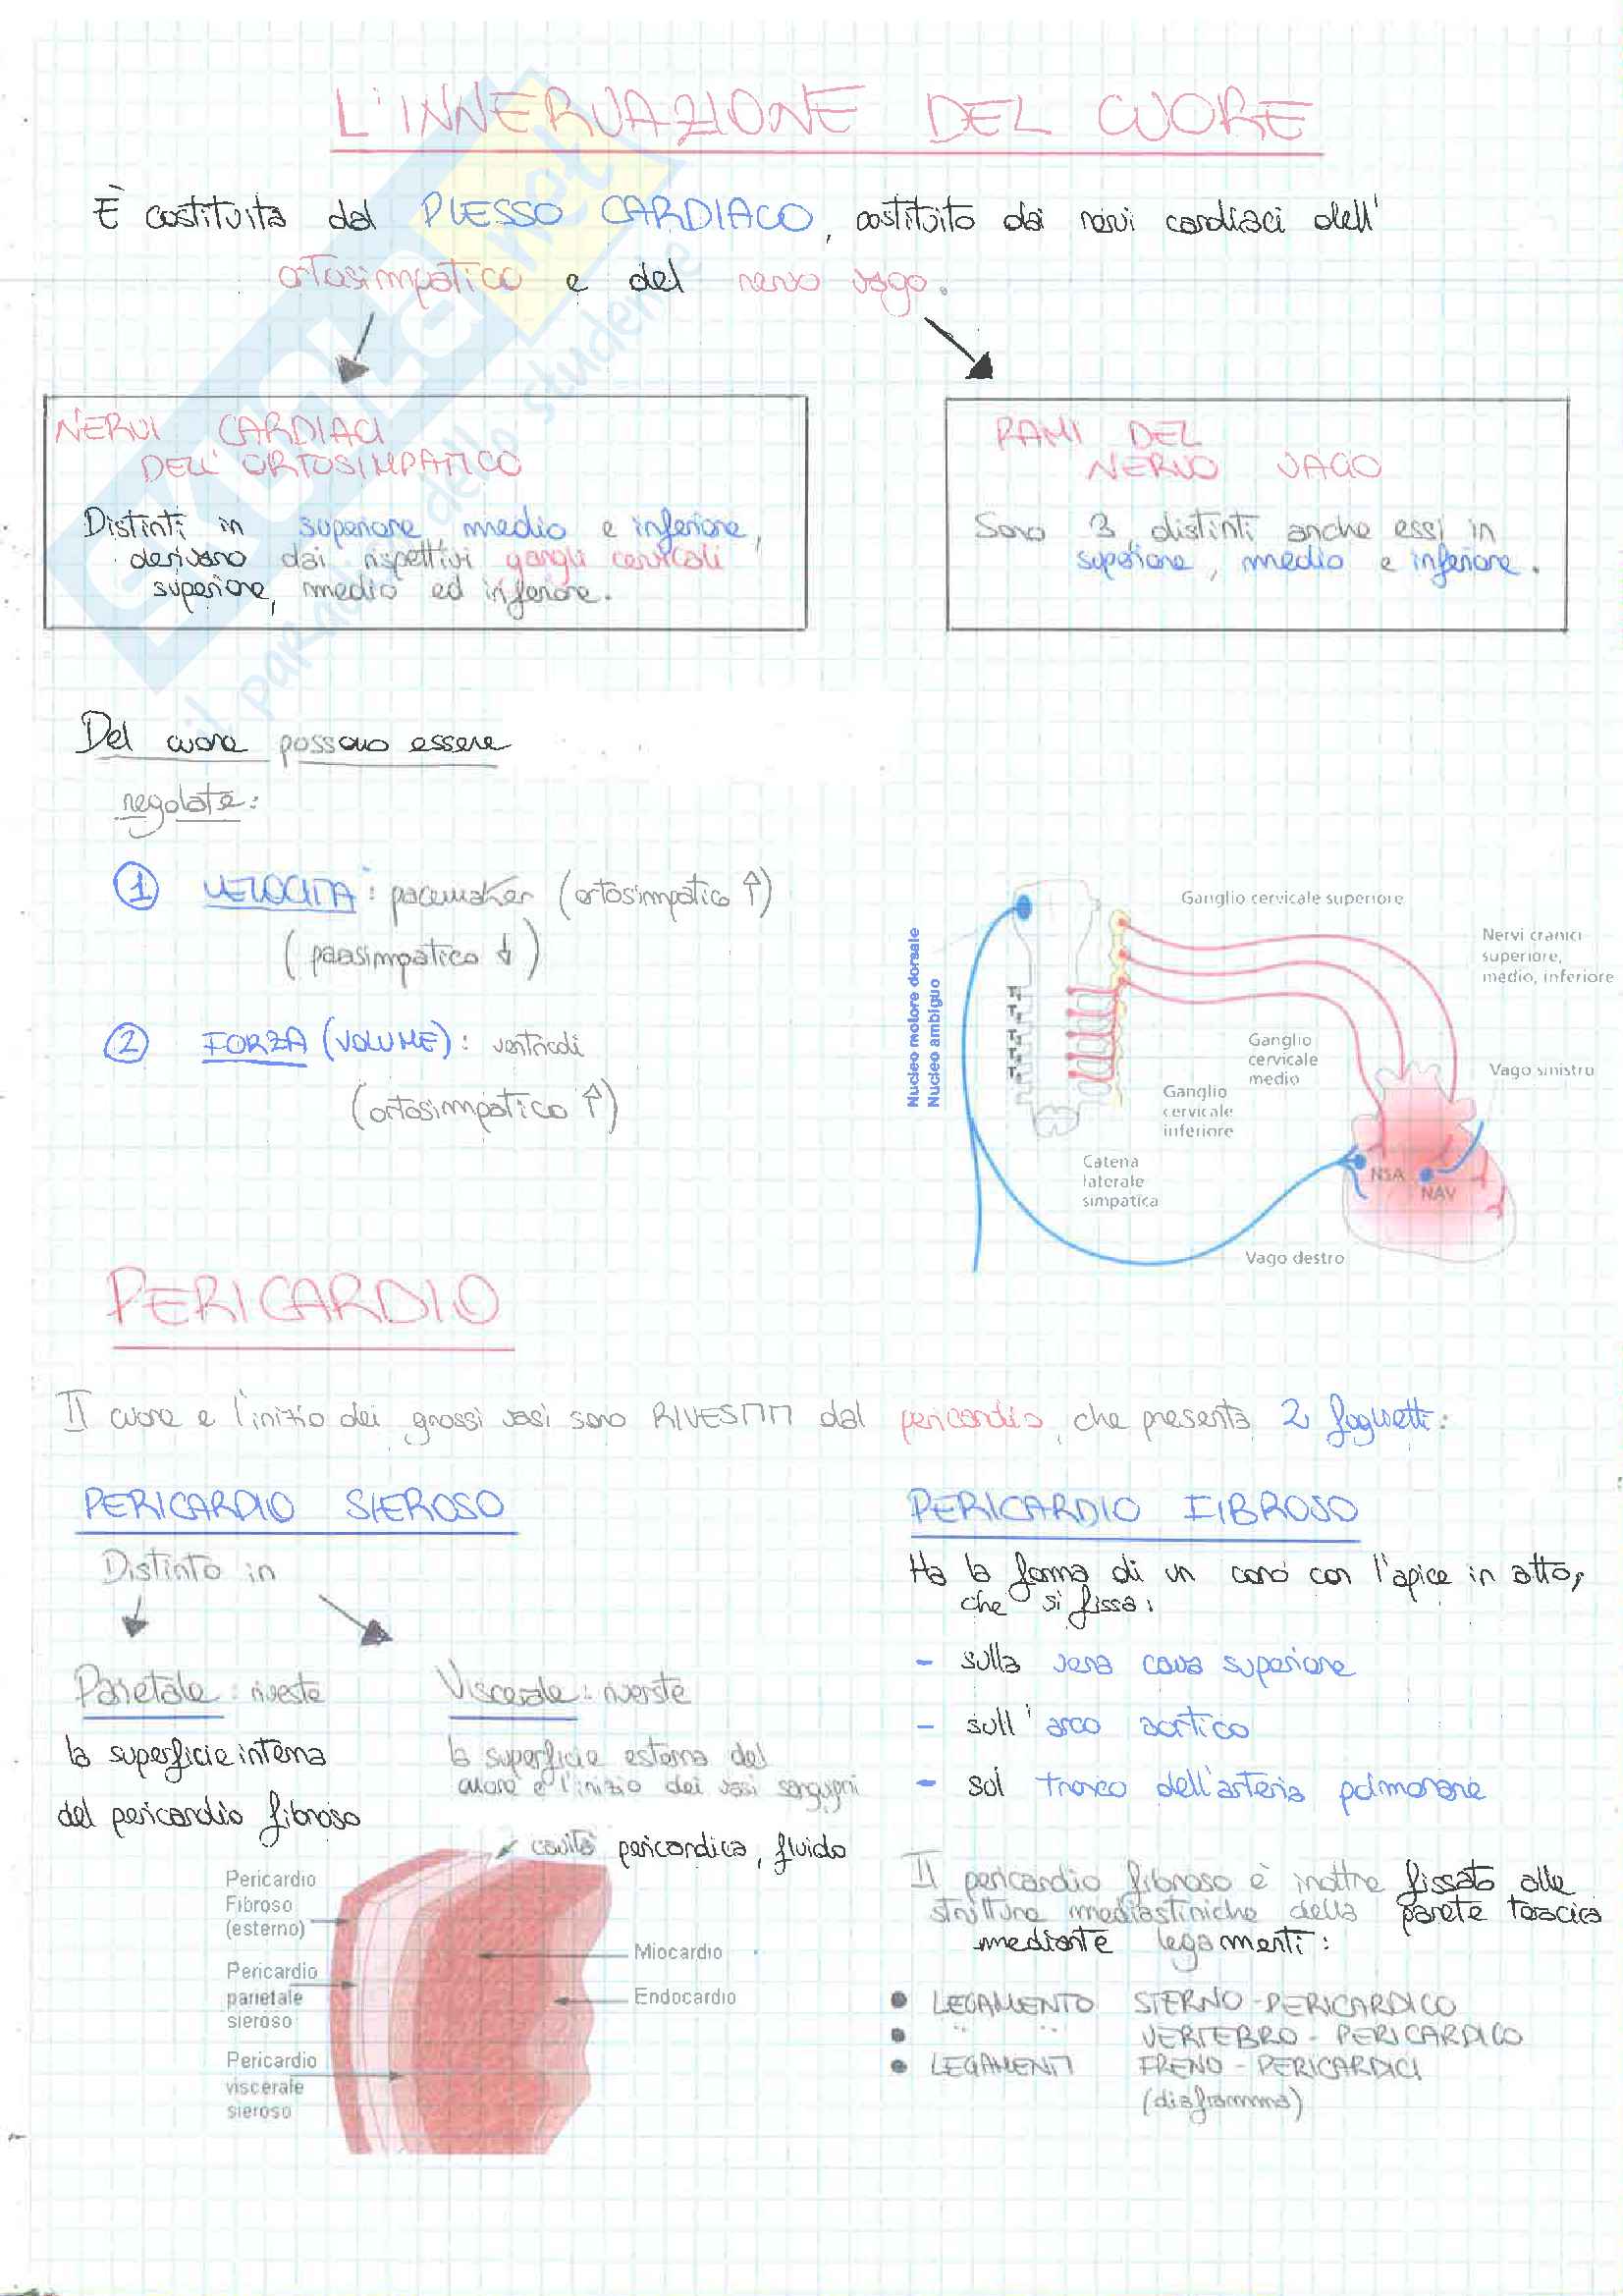 L'INNERVAZIONE DEL CUORE
È costituita dal PLESSO CARDIACO, costituito dai nervi cardiaci dell'
ortosimpatico e del nervo vago.
NERVI CARDIACI
DELL'ORTOSIMPATICO
Distinti in superiore, medio e inferiore,
derivano dai rispettivi gangli cervicali
superiore, medio ed inferiore.
RAMI DEL
NERVO VAGO
Sono 3, distinti anche essi in
superiore, medio e inferiore.
Del cuore possono essere
regolate:
1 VELOCITÀ: pacemaker (ortosimpatico ↑)
(parasimpatico ↓)
2 FORZA (VOLUME): ventricoli
(ortosimpatico ↑)
Nucleo motore dorsale
Nucleo ambiguo
Ganglio cervicale superiore
Nervi cranici
superiore,
medio, inferiore
Ganglio
cervicale
medio
Vago sinistro
Ganglio
cervicale
inferiore
Catena
laterale
simpatica
NSA
NAV
Vago destro
PERICARDIO
Il cuore e l'inizio dei grossi vasi sono RIVESTITI dal pericardio, che presenta 2 foglietti:
PERICARDIO SIEROSO
Distinto in
Parietale: riveste
la superficie interna
del pericardio fibroso
Viscerale: riveste
la superficie esterna del
cuore e l'inizio dei vasi sanguigni
cavità pericardica, fluido
Pericardio
Fibroso
(esterno)
Pericardio
parietale
sieroso
Pericardio
viscerale
sieroso
Miocardio
Endocardio
PERICARDIO FIBROSO
Ha la forma di un cono con l'apice in alto,
che si fissa:
- sulla vena cava superiore
- sull'arco aortico
- sul tronco dell'arteria polmonare
Il pericardio fibroso è inoltre fissato alle
strutture mediastiniche della parete toracica
mediante legamenti:
• LEGAMENTO STERNO-PERICARDICO
• " " VERTEBRO-PERICARDICO
• LEGAMENTI FRENO-PERICARDICI
(diaframma)